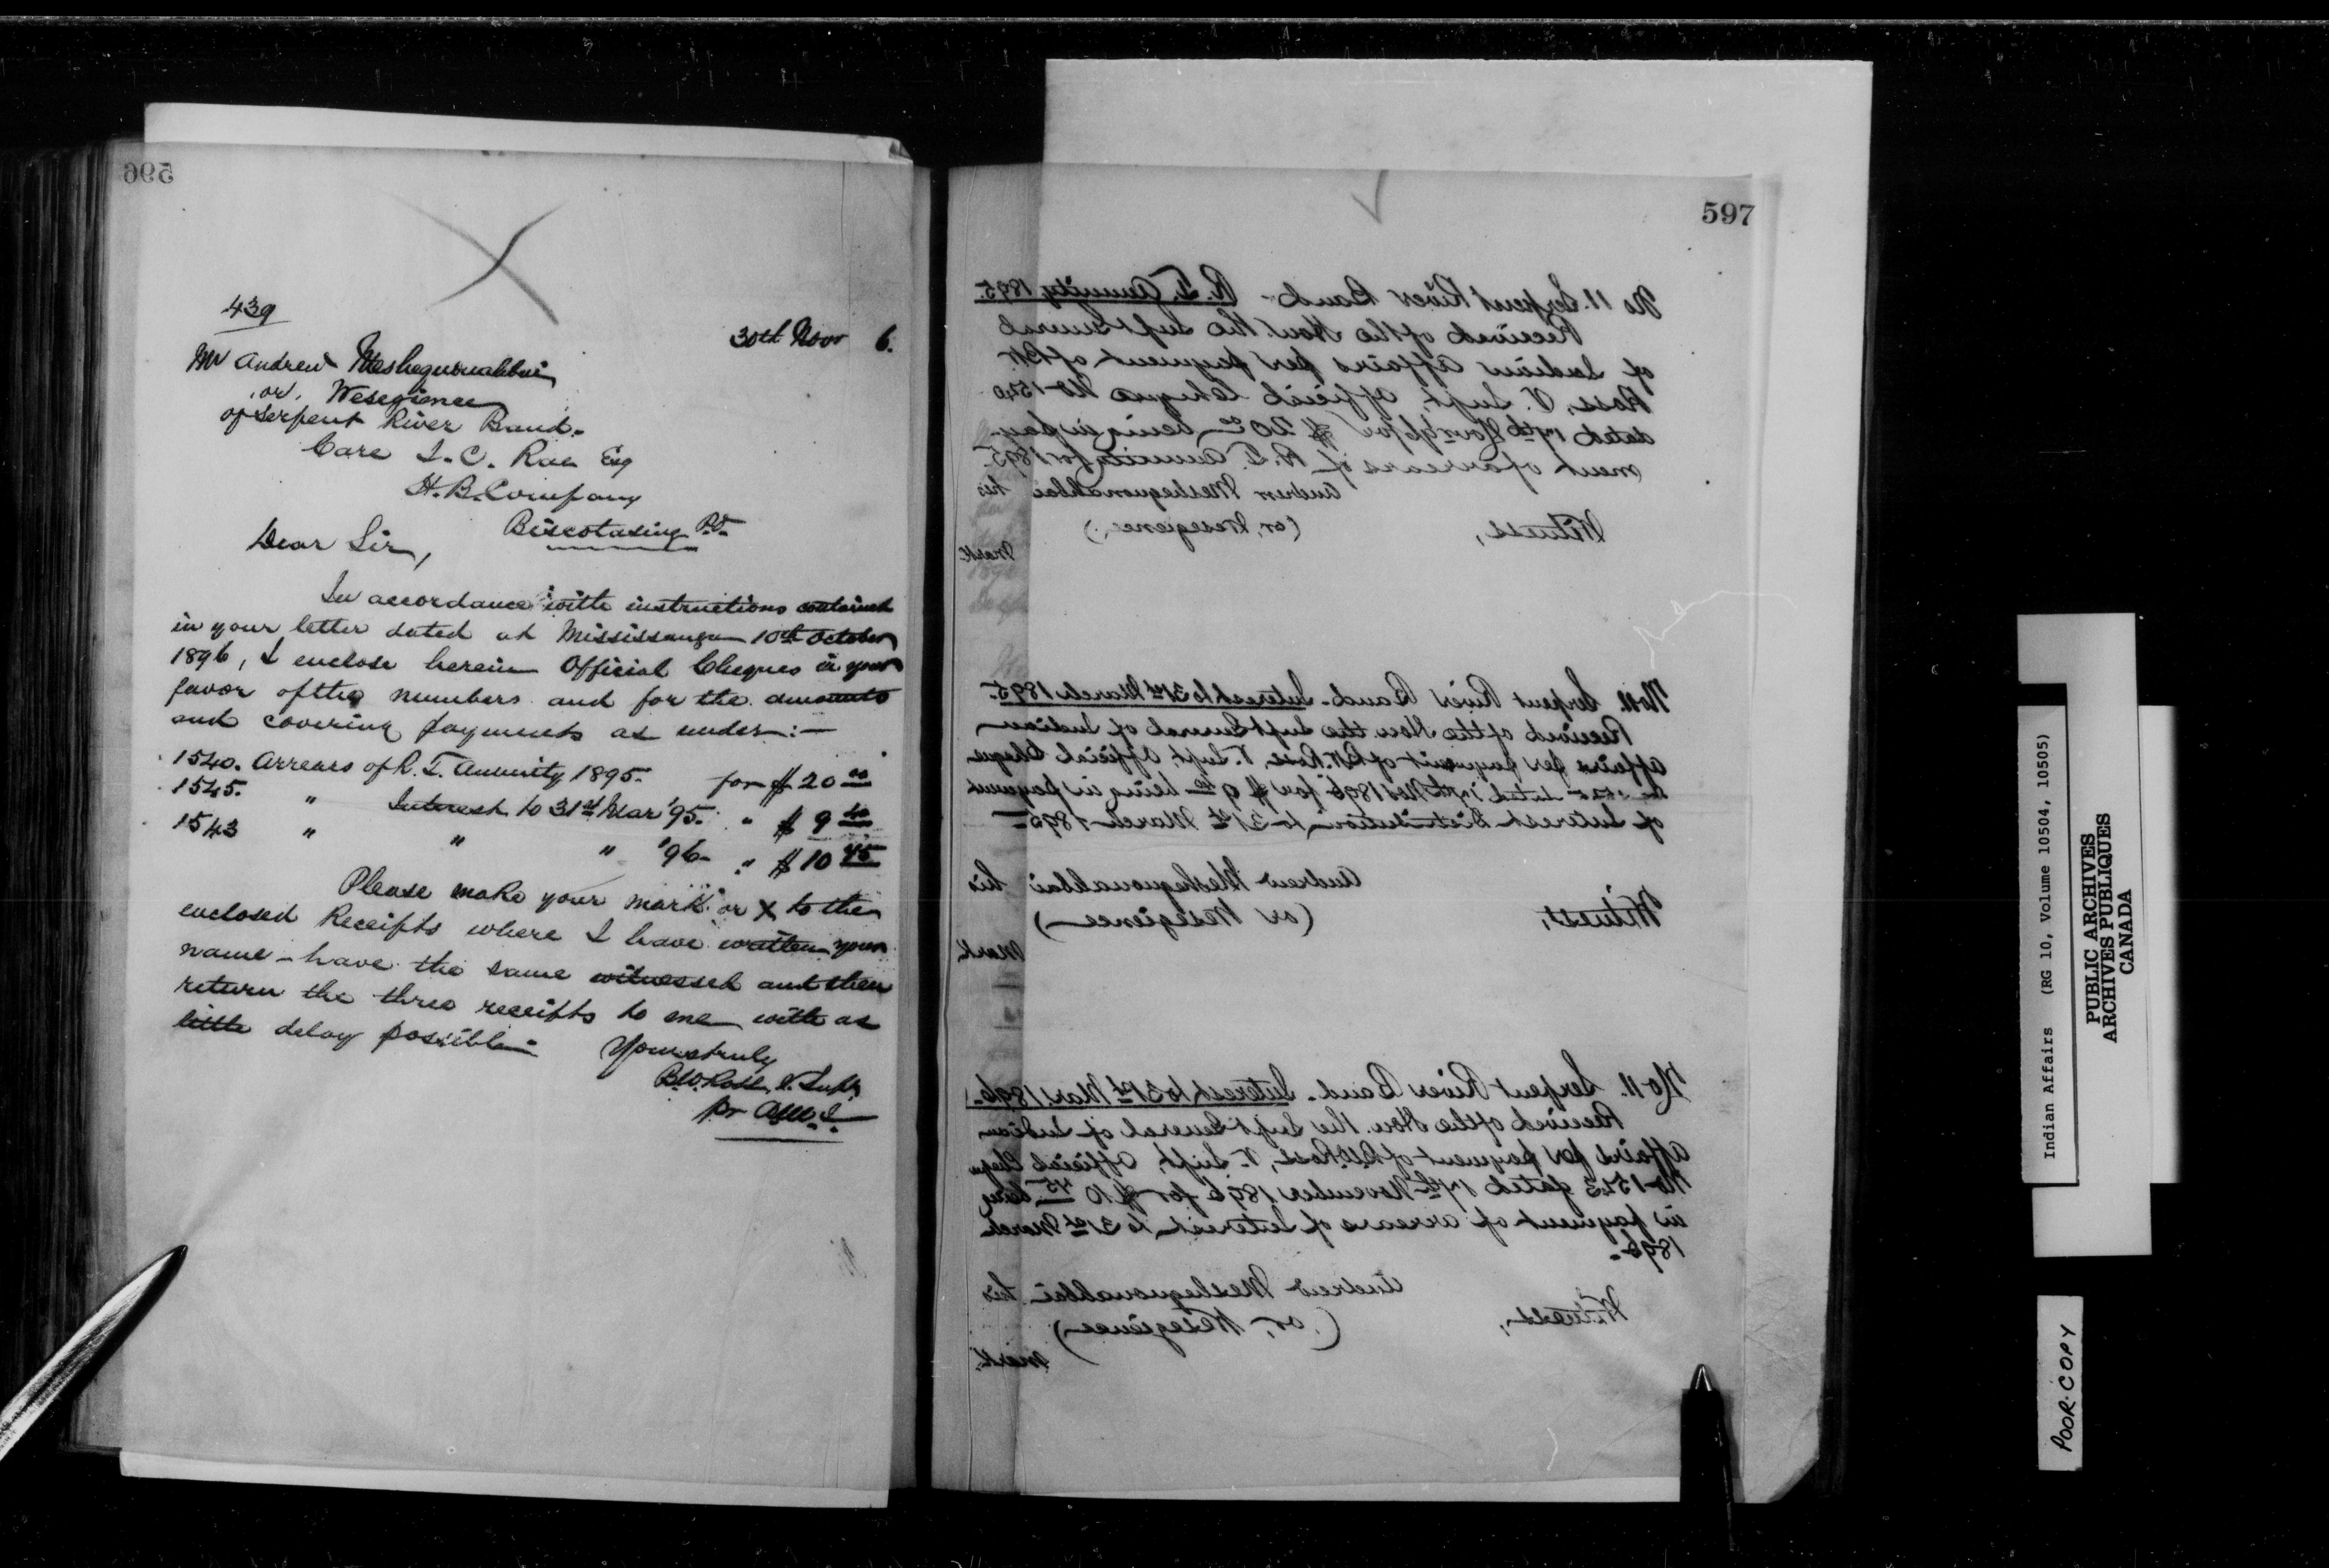 596
439
30th Nov 6.
Mr Andrew Meshequonahbai
or, Wesegience
of Serpent River Band.
Care I. C. Rae Esq
H. B. Company
Biscotasing P.O.
Dear Sir,
In accordance with instructions contained
in your letter dated at Mississauga 10th October
1896, I enclose herein Official Cheques in your
favor of the numbers and for the amounts
and covering payments as under:—
1540. Arrears of R. T. Annuity 1895. for $20 00
1545. " Interest to 31st Mar '95. " $9 40
1543 " " " '96- " $10 45
Please make your mark or X to the
enclosed Receipts where I have written your
name - have the same witnessed and then
return the three receipts to me with as
little delay possible-
Yours truly
B.W. Ross, V. Supt.
pr
597
No 11. Serpent River Band - R. T. Annuity 1895.
Received of the Hon. the Supt General
of Indian Affairs per payment of B.W.
Ross, V. Supt, Official Cheque No 1540
dated 17th Nov 96 for $20 00 being in pay-
ment of arrears of R. T. Annuity for 1895.
Andrew Meshequonahbai his
Witness, (or, Wesegience)
mark
No 11. Serpent River Band - Interest to 31st March 1895.
Received of the Hon. the Supt General of Indian
Affairs per payment of B.W. Ross, V. Supt, Official Cheque
dated 17th Nov 1896 for $9 40 being in payment
of Interest Distribution to 31st March 1895-
Andrew Meshequonahbai his
Witness, (or Wesegience)
mark
No 11. Serpent River Band - Interest to 31st Mar/1896-
Received of the Hon. the Supt General of Indian
Affairs per payment of B.W. Ross, V. Supt, Official Cheque
No 1543 dated 17th November 1896 for $10 45 being
in payment of arrears of Interest to 31st March
1896-
Andrew Meshequonahbai his
Witness, (or, Wesegience)
mark
Indian Affairs (RG 10, Volume 10504, 10505)
PUBLIC ARCHIVES
ARCHIVES PUBLIQUES
CANADA
POOR COPY